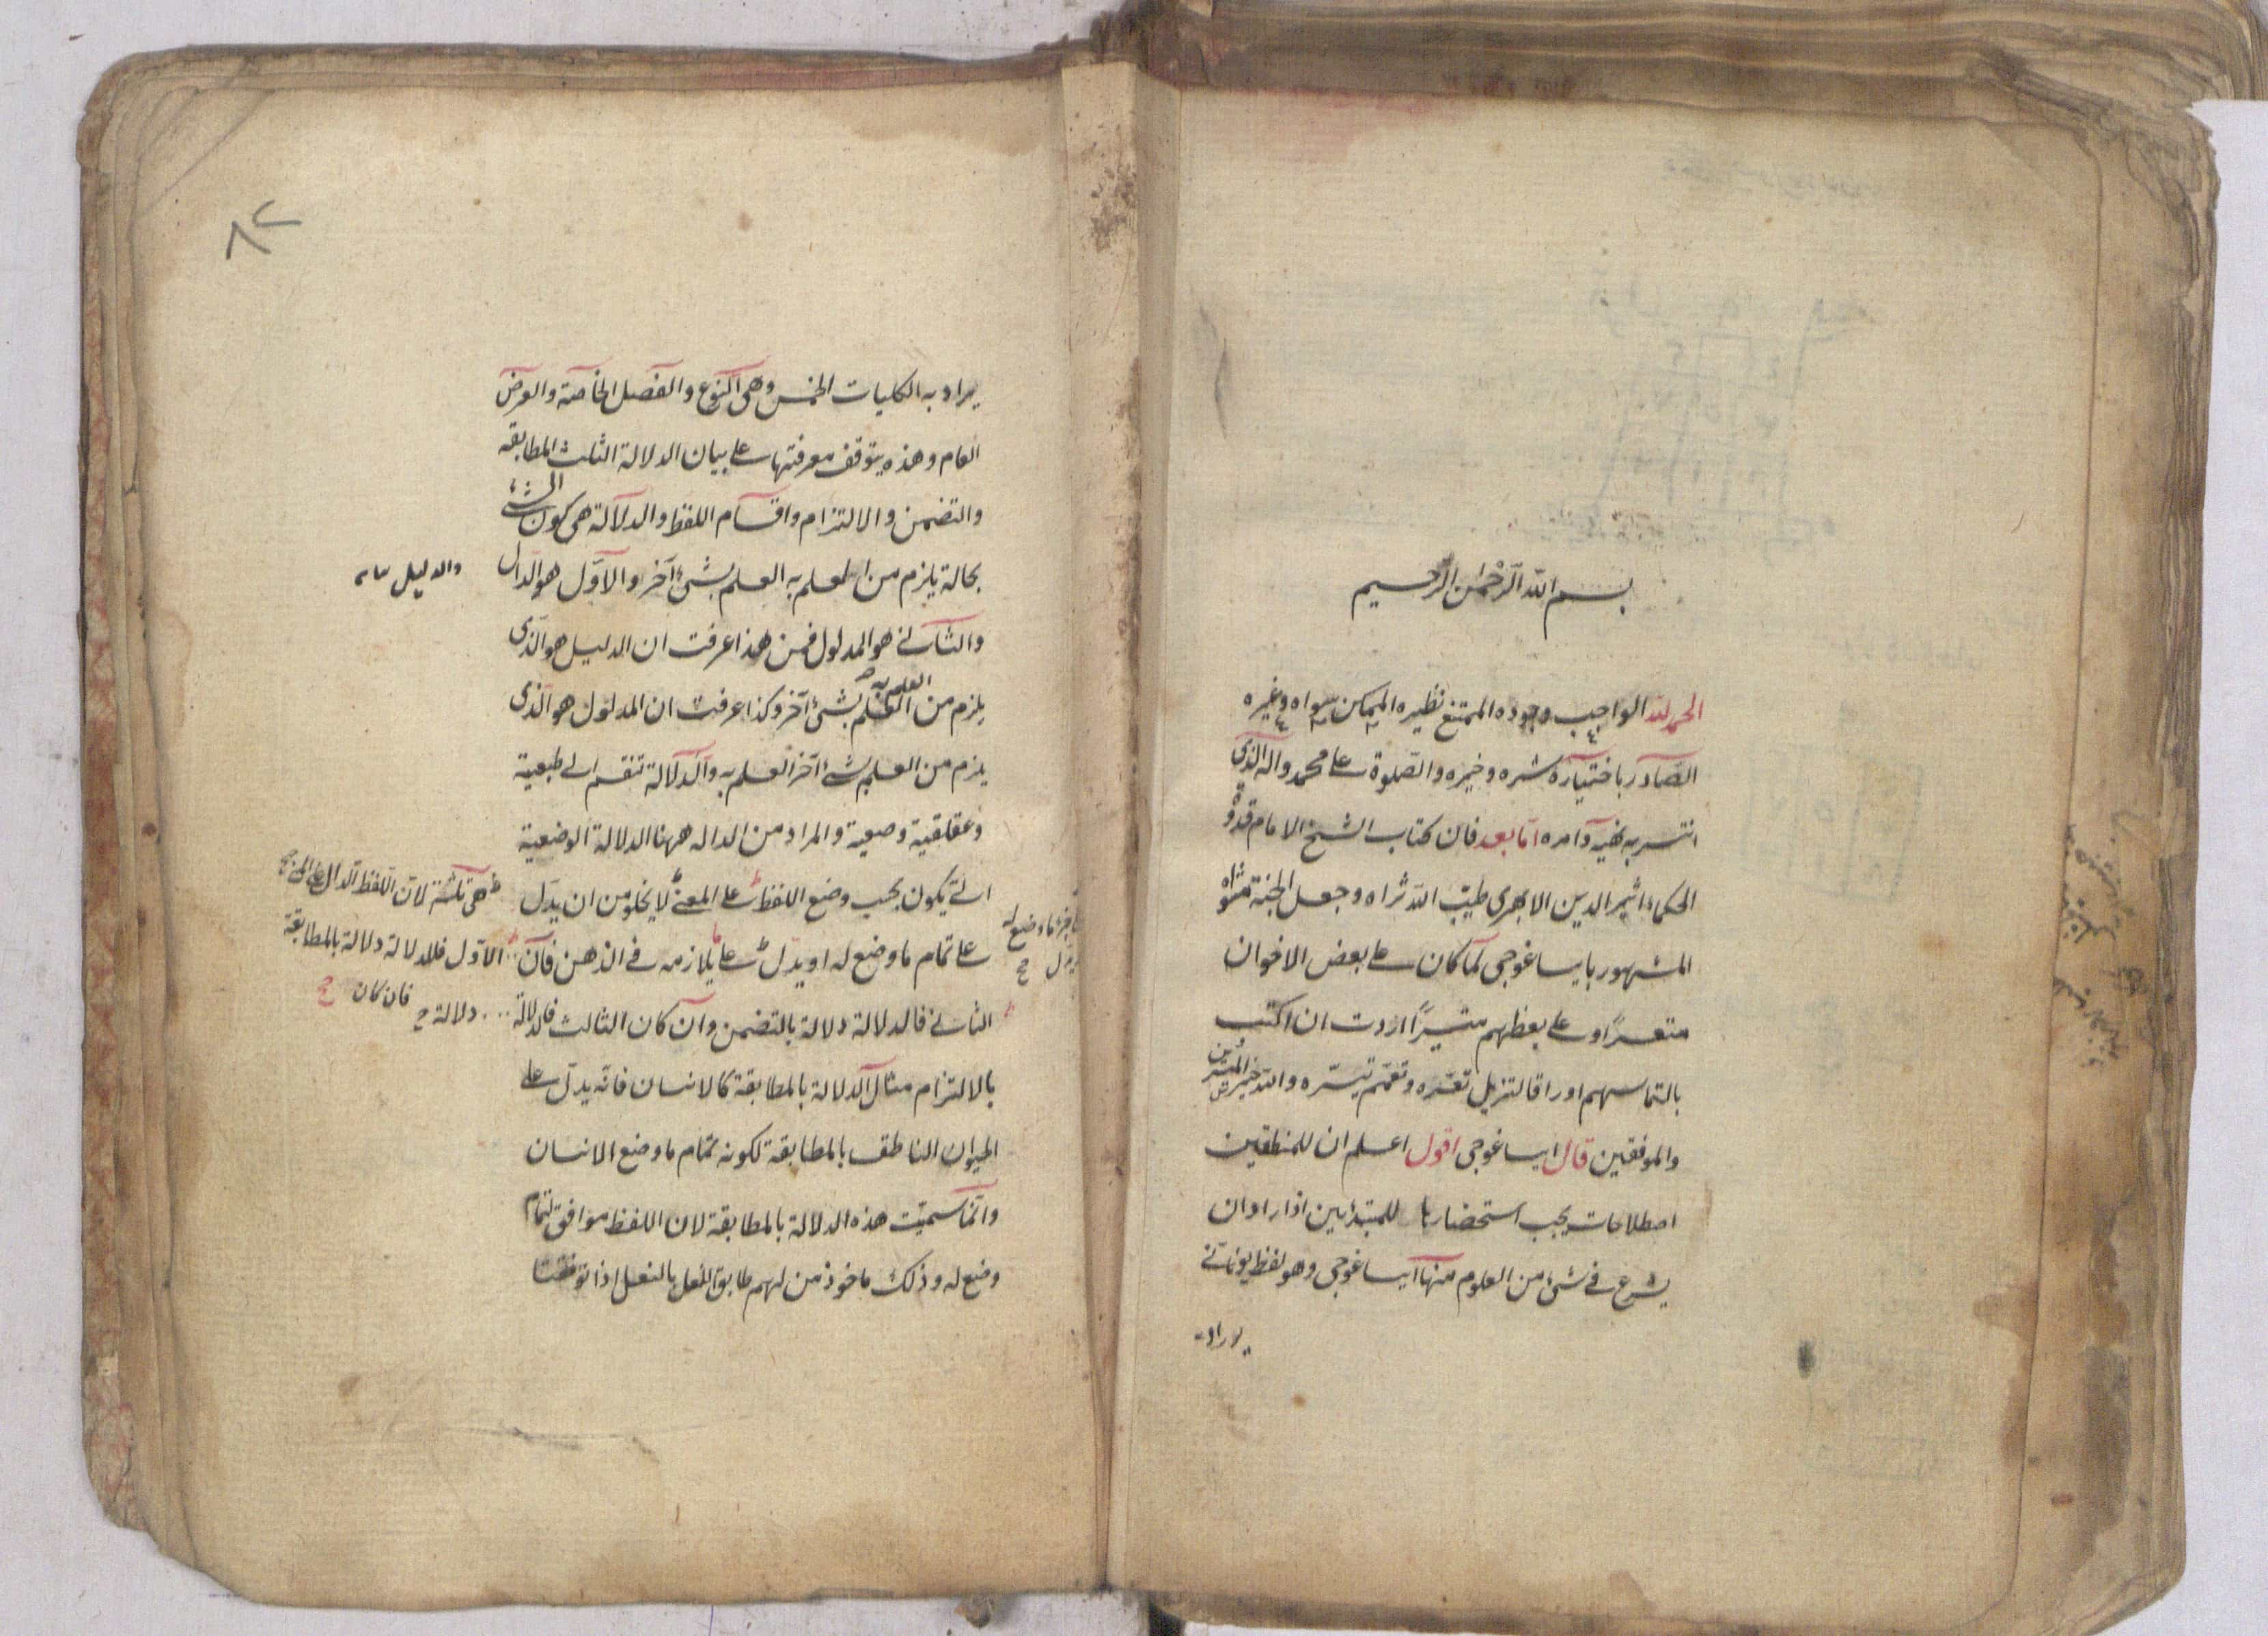 بسم الله الرحمن الرحيم
الحمد لله الواجب وجوده الممتنع نظيره الممكن سواه وغيره
الصادر باختياره شره وخيره والصلوة على محمد واله الذي
انتسر به نهيه وآمره اما بعد فان كتاب الشيخ الامام قدوة
الحكماء اثير الدين الابهري طيب الله ثراه وجعل الجنة مثواه
المشهور بايساغوجي لما كان على بعض الاخوان
متعسرًا وعلى بعظهم متيسرًا اردت ان اكتب
بالتماسهم اوراقا لتزيل تعسره وتعمم تيسره والله خير الميسرين
والموفقين قال ايساغوجي اقول اعلم ان للمنطقين
اصطلاحات يجب استحضارها للمبتدايين اذا ارادان
يشرع في شئ من العلوم منها ايساغوجي وهو لفظ يوناني
يراد به
٨٢
يراد به الكليات الخمس وهى النوع والفصل الخاصة والعرض
العام وهذه يتوقف معرفتها على بيان الدلالة الثلث المطابقة
والتضمن والالتزام واقسام اللفظ والدلالة هى كون الشئ
بحالة يلزم من العلم به العلم بشئ آخر والاول هو الدال
والدليل
والثاني هو المدلول فمن هذا عرفت ان الدليل هو الذى
يلزم من العلم به العلم بشئ آخر وكذا عرفت ان المدلول هو الذى
يلزم من العلم بشئ آخر العلم به والدلالة تنقسم الى طبعية
وعقلقية وصعية والمراد من الداله ههنا الدلالة الوضعية
التى يكون بحسب وضع اللفظ على المعنى لا يخلو من ان يدل
هى ثلثة لان اللفظ الدال على المعنى
على تمام ما وضع له او يدل على ما يلازمه فى الذهن فان
جزء ما وضع له
الاول فالدلالة دلالة بالمطابقة
فان كان
الثانى فالدلالة دلالة بالتضمن وان كان الثالث فالدلالة
دلالة
بالالتزام مثال الدلالة بالمطابقة كالانسان فانه يدل على
الحيوان الناطق بالمطابقة لكونه تمام ما وضع الانسان
وانما سميت هذه الدلالة بالمطابقة لان اللفظ موافق لتمام
وضع له وذلك ماخوذ من لهم طابق النعل بالنعل اذا توافقتا